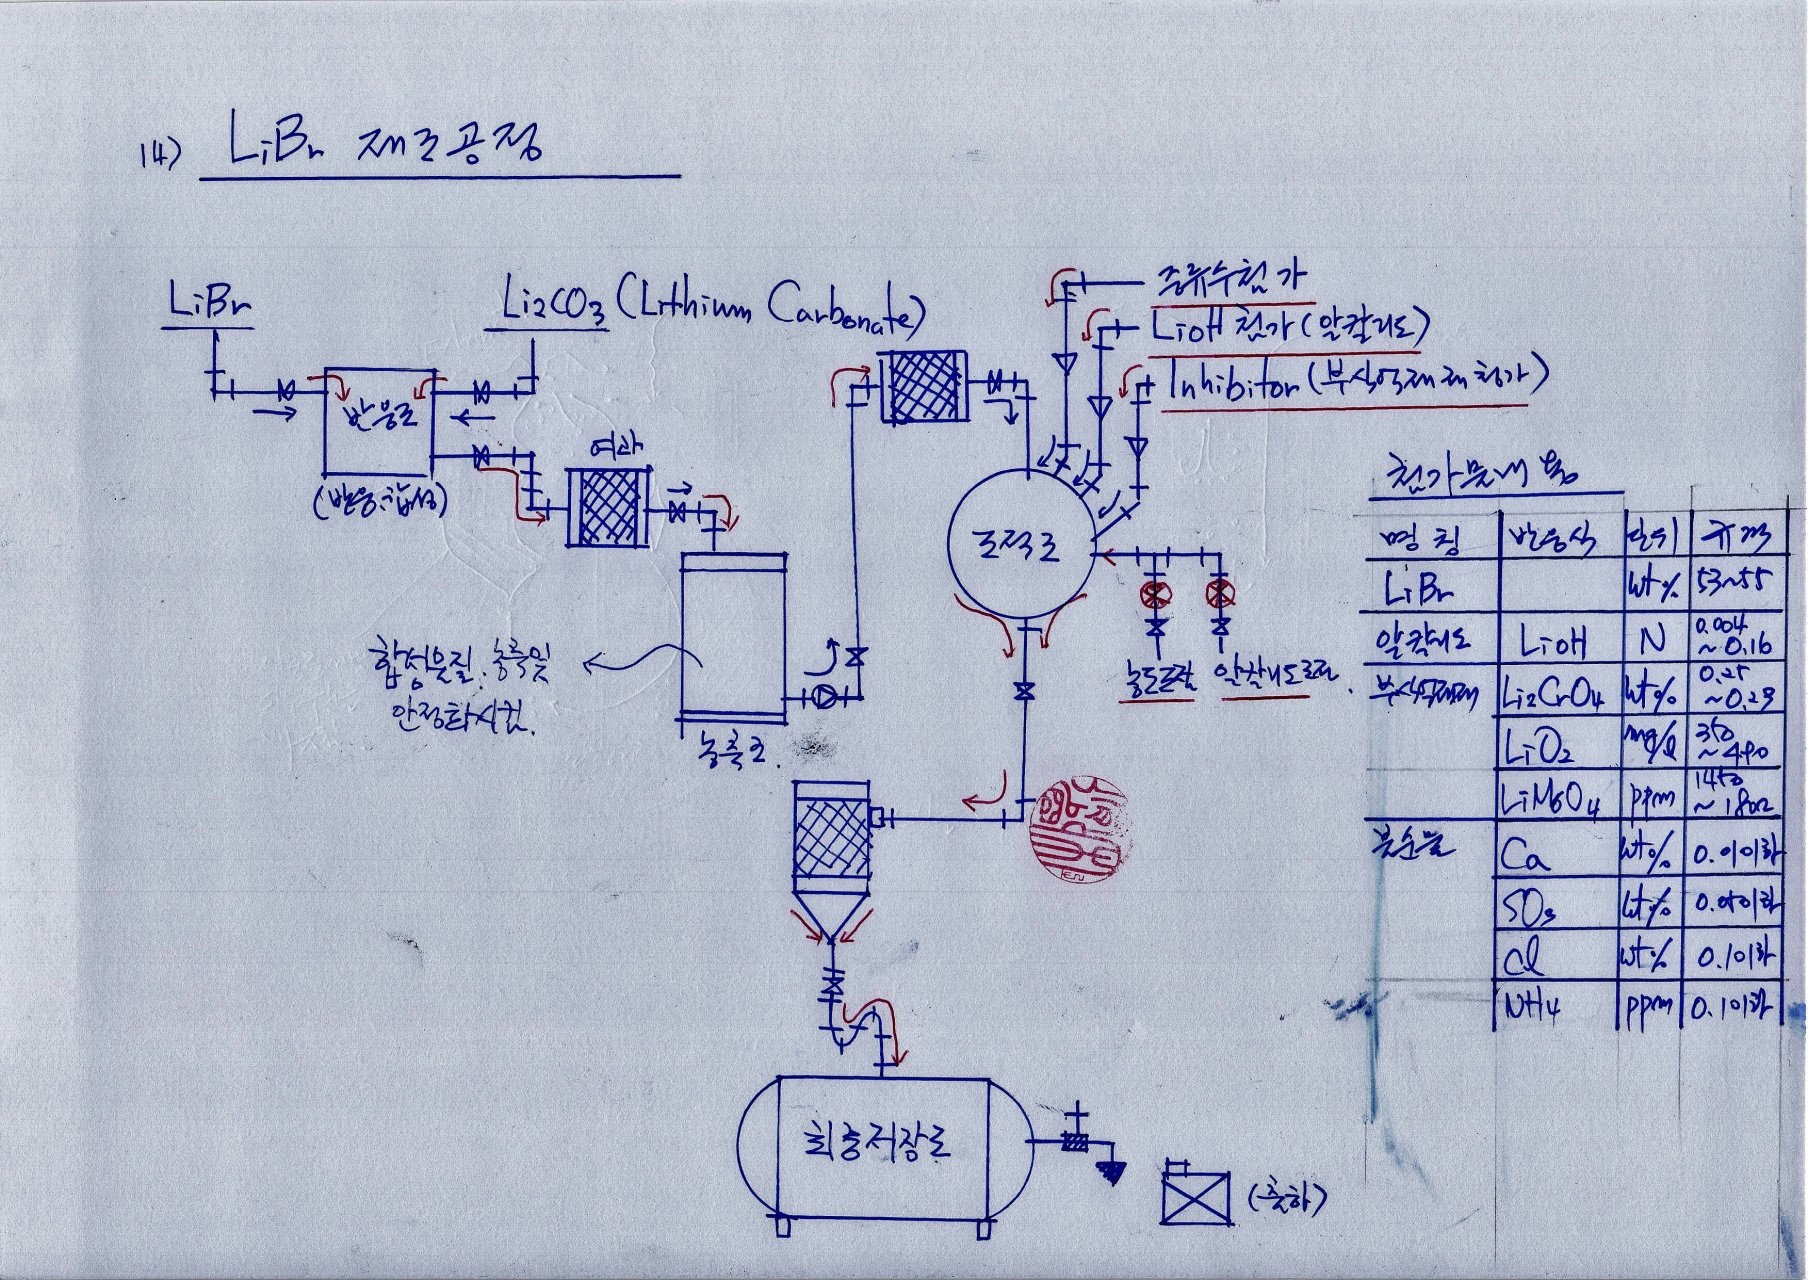 14) LiBr 제조공정
LiBr
Li2CO3 (Lithium Carbonate)
증류수첨가
LiOH 첨가 (알칼리도)
Inhibitor (부식억제제 첨가)
반응조
(반응.합성)
여과
합성물질. 농축및
안정화시킴.
농축조.
조정조
농도조절
알칼리도조절.
최종저장조
(출하)
첨가물내용
명칭 반응식 단위 규격
LiBr wt% 53~55
알칼리도 LiOH N 0.004 ~0.16
부식억제제 Li2CrO4 wt% 0.25 ~0.29
LiO2 mg/l 350
LiMoO4 ppm 1450
불순물 Ca wt%
SO3 wt%
Cl wt% 0.1이하
NH4 ppm 0.1이하